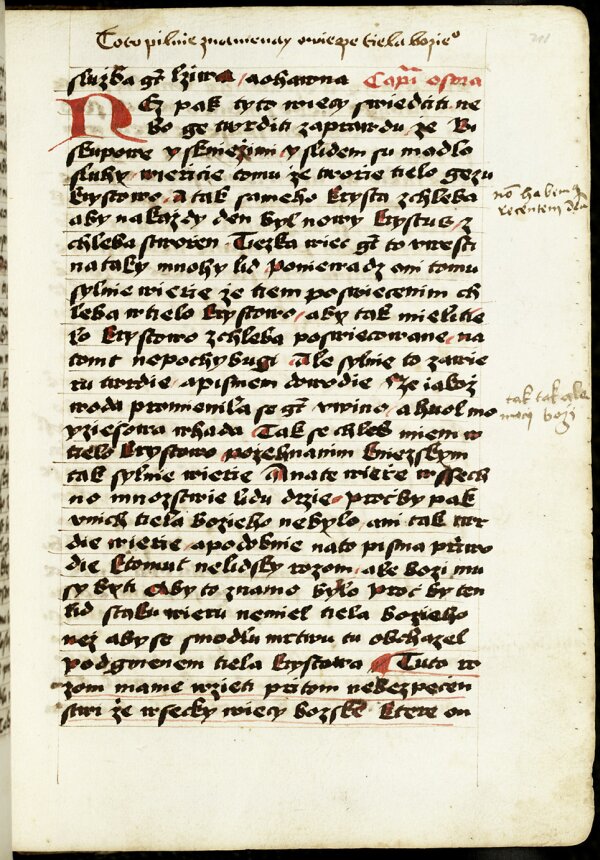 Toto pilnie znamenay o wiepe tiela bozie°
služba gt lziwa, a ohawna Capi osma
Nez pak tyto wiecy swiedciti ne
bo ge twrditi zaprawdu, ze Bi
skupowe y s knieżimi, y s lidem su modlo
sluhy, wieriece tomu že tworie tielo gezu
krystowo, A tak sameho krysta z chleba
aby na każdy den byl nowy krystus, z
chleba stworen. Tiezka wiec gt to wnesti
na taky mnohy lid, Poniewadz oni tomu
sylnie wierie že tiem poswiecenim ch
leba w tielo krystowo, aby tak mieli tie
lo krystowo z chleba poswiecowane, na
tomt nepochybugi Ale sylnie to zawie
ru twrdie, a pismem dowodie, že iakož
woda promienila se gt v wino, a huol mo
yziesowa w hada, Tak se chleb mieni w
tielo krystowo, požehnanim knieżskym
tak sylnie wierie A na te wiere wssech
no mnozstwie lidu drzie, proč by pak
v nich tiela bozieho nebylo, ani tak twr
die wierie, a podobnie na to pisma priwo
die k tomut ne lidsky rozom, ale bozi mu
sy byti Aby to znamo bylo proč by ten
lid s taku wieru nemiel tiela bozieho
než aby se s modlu mrtwu tu obchazel
pod gmenem tiela krystowa Tuto ro
zom mame wzieti pri tom nebezpecen
stwi že wsecky wiecy bozske, ktere on
no habem9
recentem
tak tak ale
mocy bozi